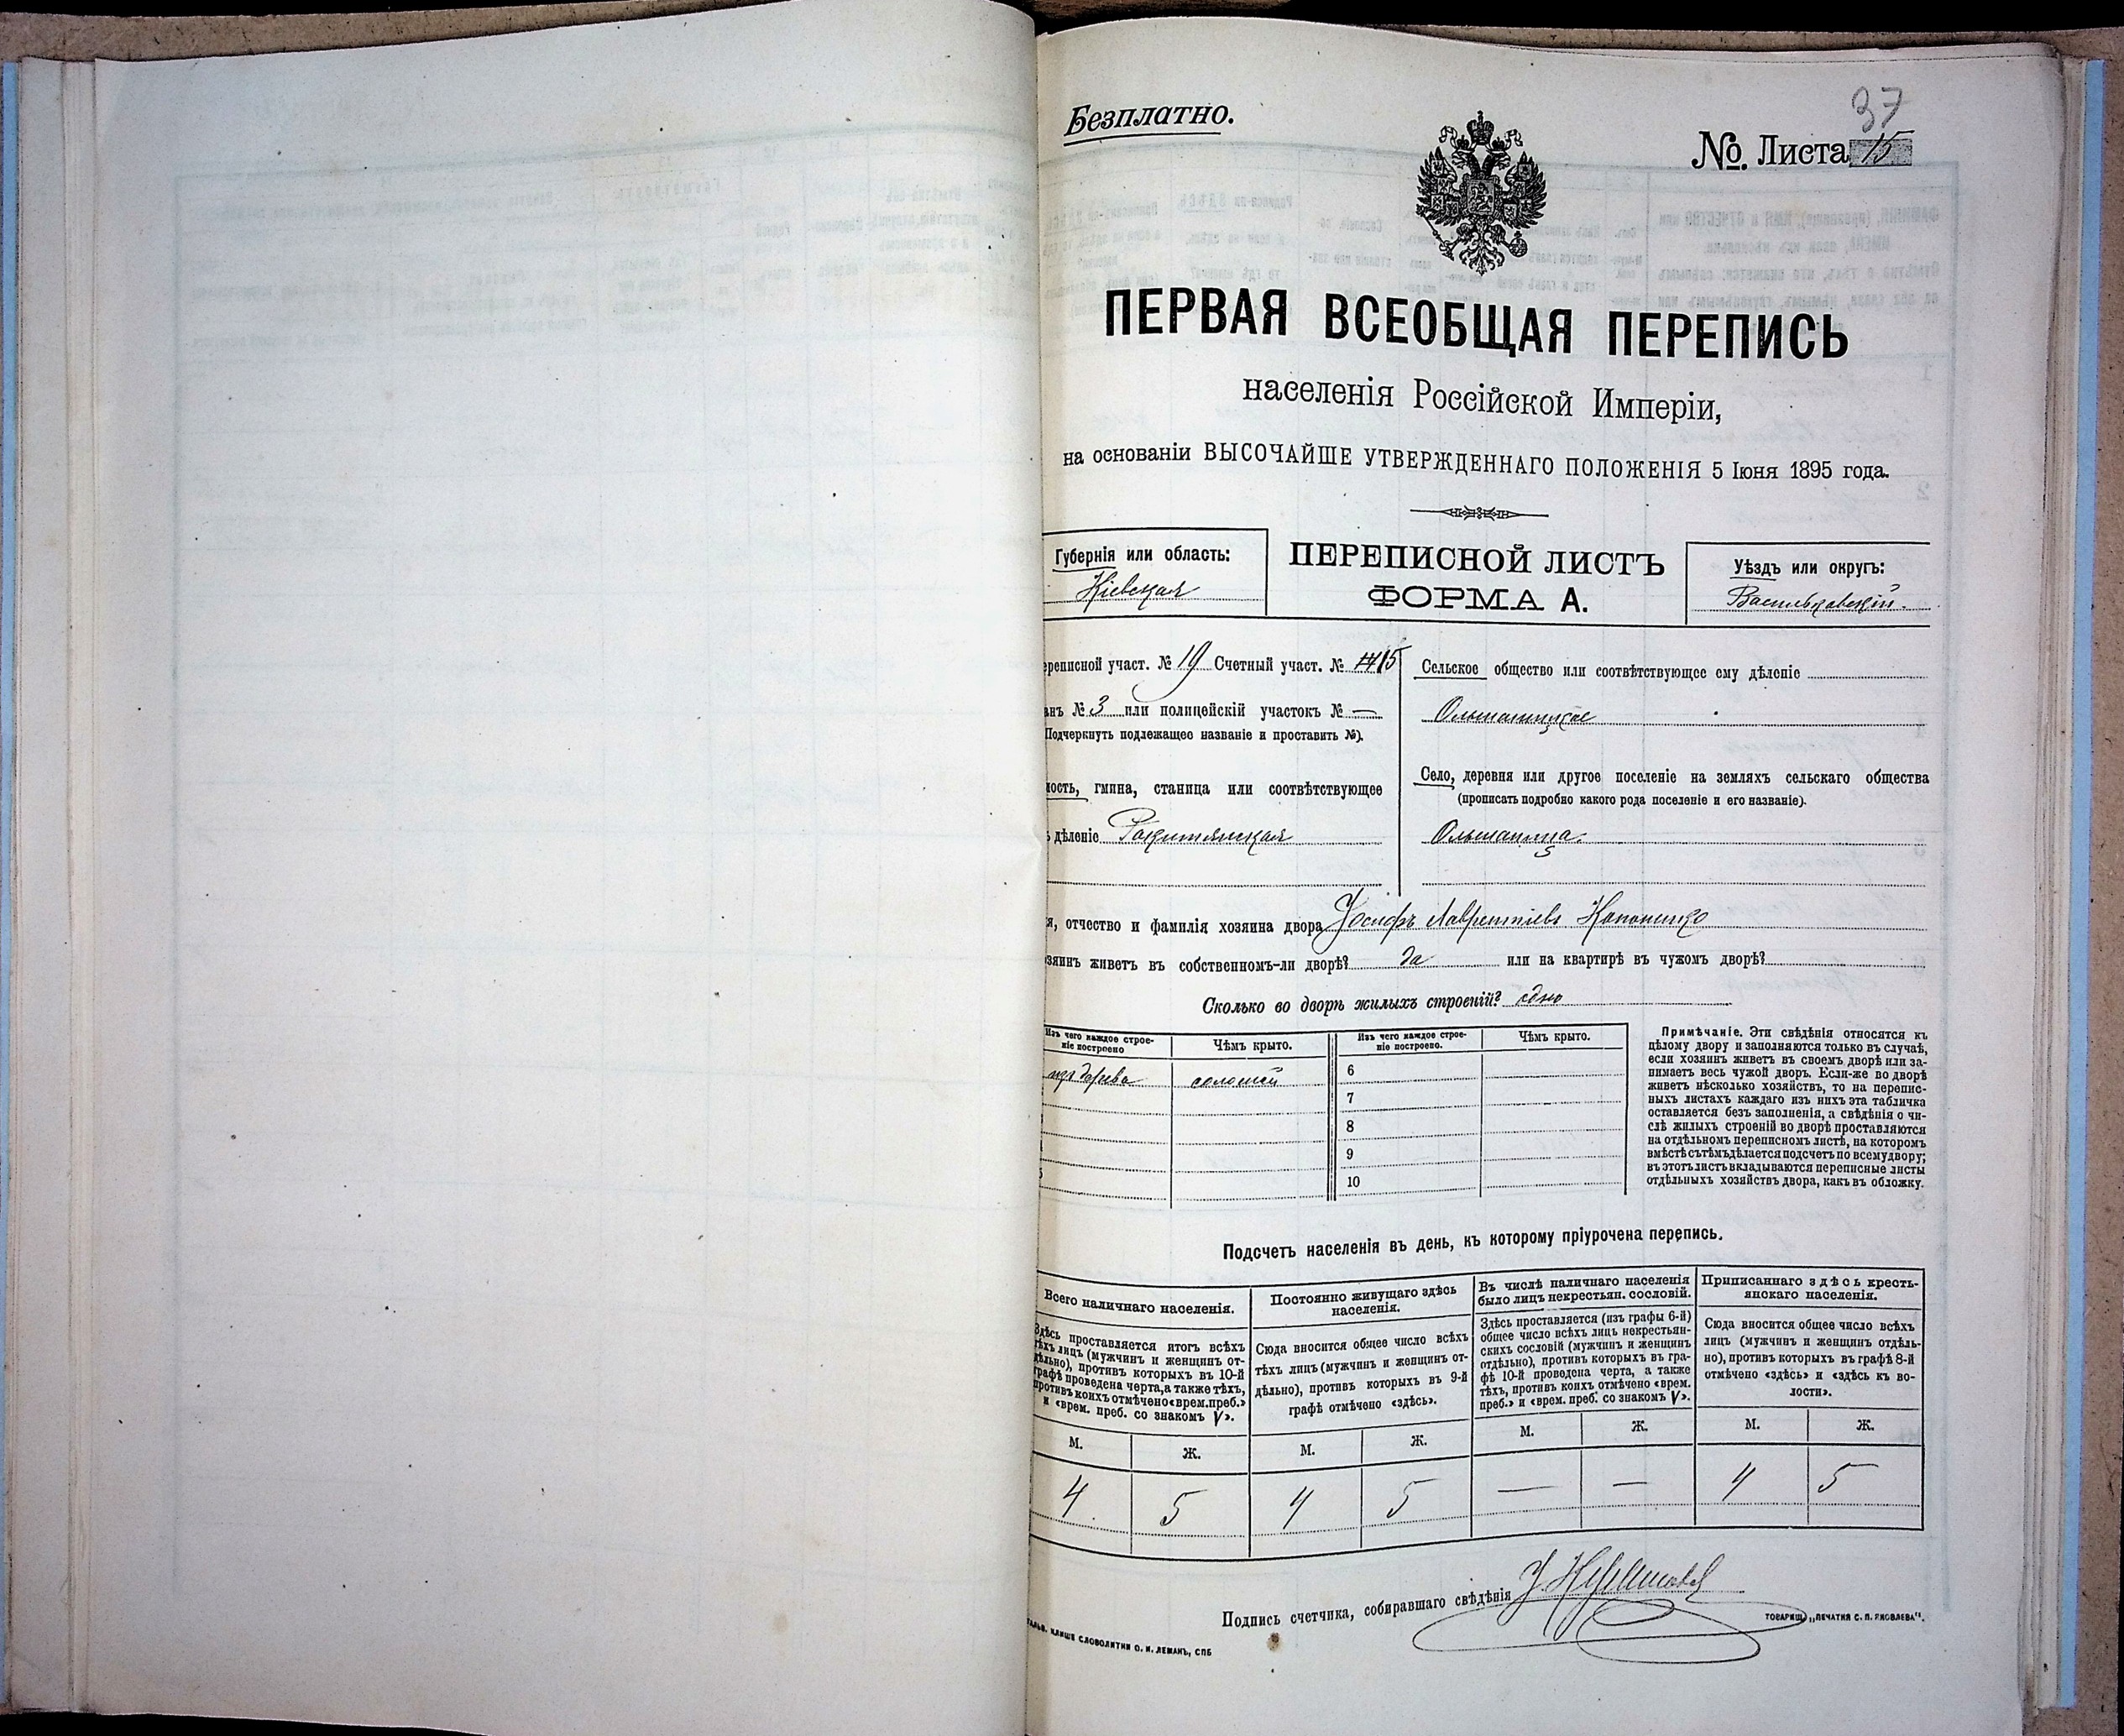 Безплатно.
37
№. Листа 15
ПЕРВАЯ ВСЕОБЩАЯ ПЕРЕПИСЬ
населенія Россійской Имперіи,
на основаніи ВЫСОЧАЙШЕ УТВЕРЖДЕННАГО ПОЛОЖЕНІЯ 5 Іюня 1895 года.
Губернія или область:
Кіевская
ПЕРЕПИСНОЙ ЛИСТЪ
ФОРМА А.
Уѣздъ или округъ:
Васильковскій.
ереписной участ. № 19 Счетный участ. № 15
анъ № 3 или полицейскій участокъ № —
Подчеркнуть подлежащее названіе и проставить №).
ость, гмина, станица или соотвѣтствующее
ъ дѣленіе Ракитянская
Сельское общество или соотвѣтствующее ему дѣленіе
Ольшаницкое
Село, деревня или другое поселеніе на земляхъ сельскаго общества
(прописать подробно какого рода поселеніе и его названіе).
Ольшаница.
я, отчество и фамилія хозяина двора Іосифъ Лаврентіевъ Кононенко
озяинъ живетъ въ собственномъ-ли дворѣ? да или на квартирѣ въ чужомъ дворѣ?
Сколько во дворѣ жилыхъ строеній? одно
Изъ чего каждое строе-
ніе построено
Чѣмъ крыто.
Изъ чего каждое строе-
ніе построено.
Чѣмъ крыто.
изъ дерева соломой
6
7
8
9
10
Примѣчаніе. Эти свѣдѣнія относятся къ
цѣлому двору и заполняются только въ случаѣ,
если хозяинъ живетъ въ своемъ дворѣ или за-
нимаетъ весь чужой дворъ. Если-же во дворѣ
живетъ нѣсколько хозяйствъ, то на перепис-
ныхъ листахъ каждаго изъ нихъ эта табличка
оставляется безъ заполненія, а свѣдѣнія о чи-
слѣ жилыхъ строеній во дворѣ проставляются
на отдѣльномъ переписномъ листѣ, на которомъ
вмѣстѣ съ тѣмъ дѣлается подсчетъ по всему двору;
въ этотъ листъ вкладываются переписные листы
отдѣльныхъ хозяйствъ двора, какъ въ обложку.
Подсчетъ населенія въ день, къ которому пріурочена перепись.
Всего наличнаго населенія.
Здѣсь проставляется итогъ всѣхъ
тѣхъ лицъ (мужчинъ и женщинъ от-
дѣльно), противъ которыхъ въ 10-й
графѣ проведена черта, а также тѣхъ,
противъ коихъ отмѣчено «врем. преб.»
и «врем. преб. со знакомъ V».
Постоянно живущаго здѣсь
населенія.
Сюда вносится общее число всѣхъ
тѣхъ лицъ (мужчинъ и женщинъ от-
дѣльно), противъ которыхъ въ 9-й
графѣ отмѣчено «здѣсь».
Въ числѣ наличнаго населенія
было лицъ некрестьян. сословій.
Здѣсь проставляется (изъ графы 6-й)
общее число всѣхъ лицъ некрестьян-
скихъ сословій (мужчинъ и женщинъ
отдѣльно), противъ которыхъ въ гра-
фѣ 10-й проведена черта, а также
тѣхъ, противъ коихъ отмѣчено «врем.
преб.» и «врем. преб. со знакомъ V».
Приписаннаго здѣсь кресть-
янскаго населенія.
Сюда вносится общее число всѣхъ
лицъ (мужчинъ и женщинъ отдѣль-
но), противъ которыхъ въ графѣ 8-й
отмѣчено «здѣсь» и «здѣсь къ во-
лости».
М. Ж. М. Ж. М. Ж. М. Ж.
4 5 4 5 — — 4 5
Подпись счетчика, собиравшаго свѣдѣнія
КЛИШЕ СЛОВОЛИТНИ О. И. ЛЕМАНЪ, СПБ
ТОВАРИЩ. „ПЕЧАТНЯ С. П. ЯКОВЛЕВА".